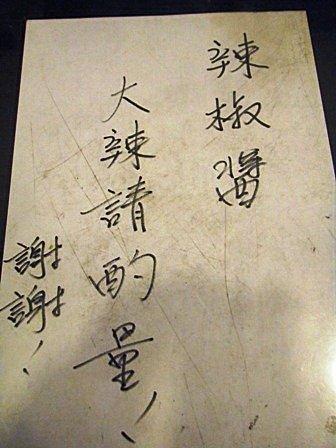 辣椒醬
大辣請酌量!
謝謝!